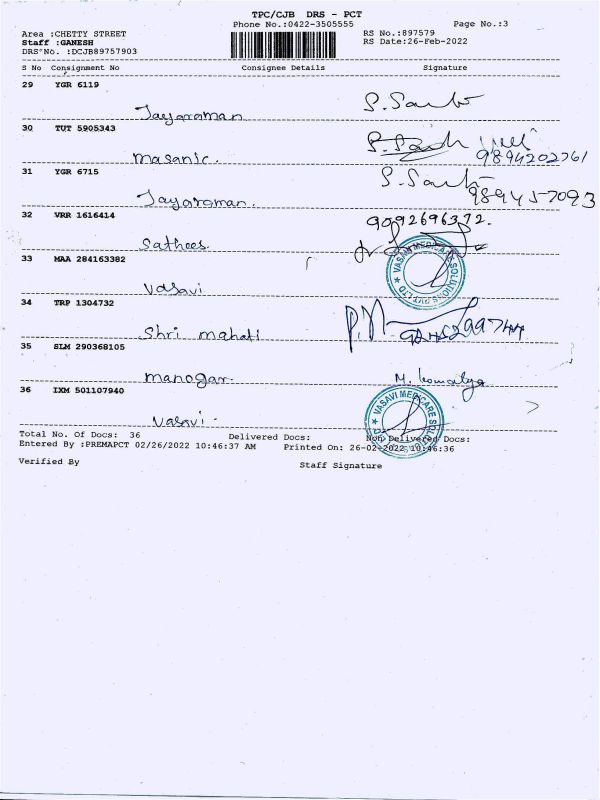 TPC/CJB DRS - PCT
Phone No.:0422-3505555 Page No.:3
Area :CHETTY STREET RS No.:897579
Staff :GANESH RS Date:26-Feb-2022
DRS No. :DCJB89757903
S No Consignment No Consignee Details Signature
29 YGR 6119
Jayaraman
30 TUT 5905343
masanic. 9894202761
31 YGR 6715
Jayaraman.
32 VRR 1616414 9092696372.
Sathees.
33 MAA 284163382
VASAVI MEDICARE SOLUTIONS PVT LTD
vasavi
34 TRP 1304732
Shri mahati
35 SLM 290368105
manogar.
36 IXM 501107940
VASAVI MEDICARE
vasavi.
Total No. Of Docs: 36 Delivered Docs: Non Delivered Docs:
Entered By :PREMAPCT 02/26/2022 10:46:37 AM Printed On: 26-02-2022 10:46:36
Verified By Staff Signature